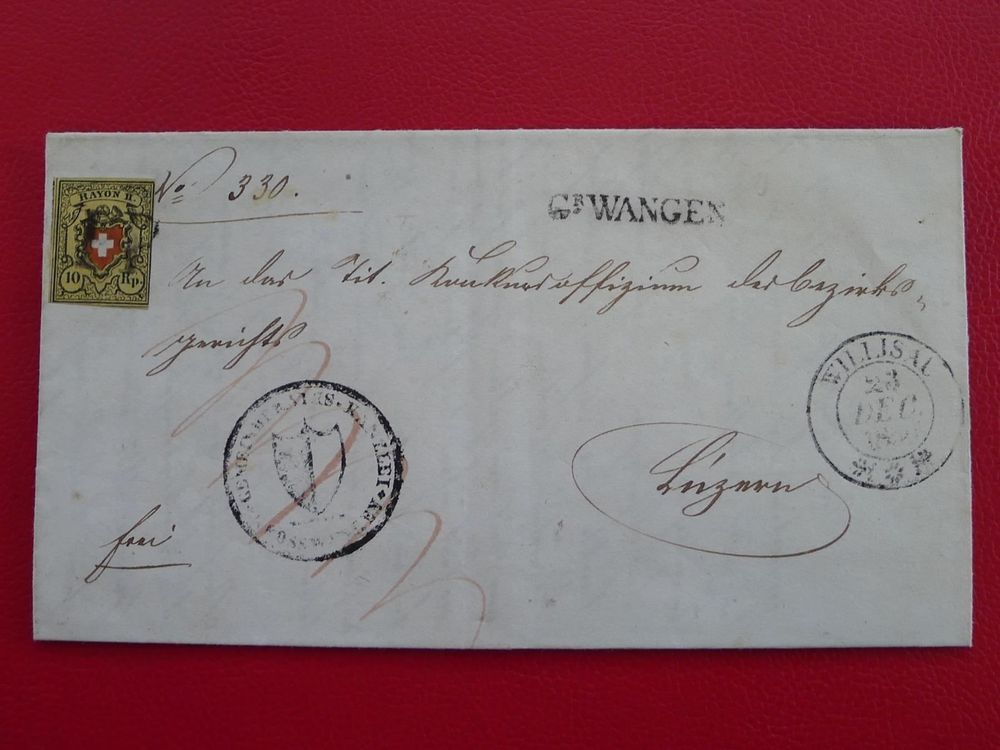 RAYON II.
10 Rp.
No 330.
GR WANGEN
An das Tit. Konkursoffizium des Bezirks-
gerichts
WILLISAU
23
DEC
GEMEINDERATHS-KANZLEI
Luzern
frei